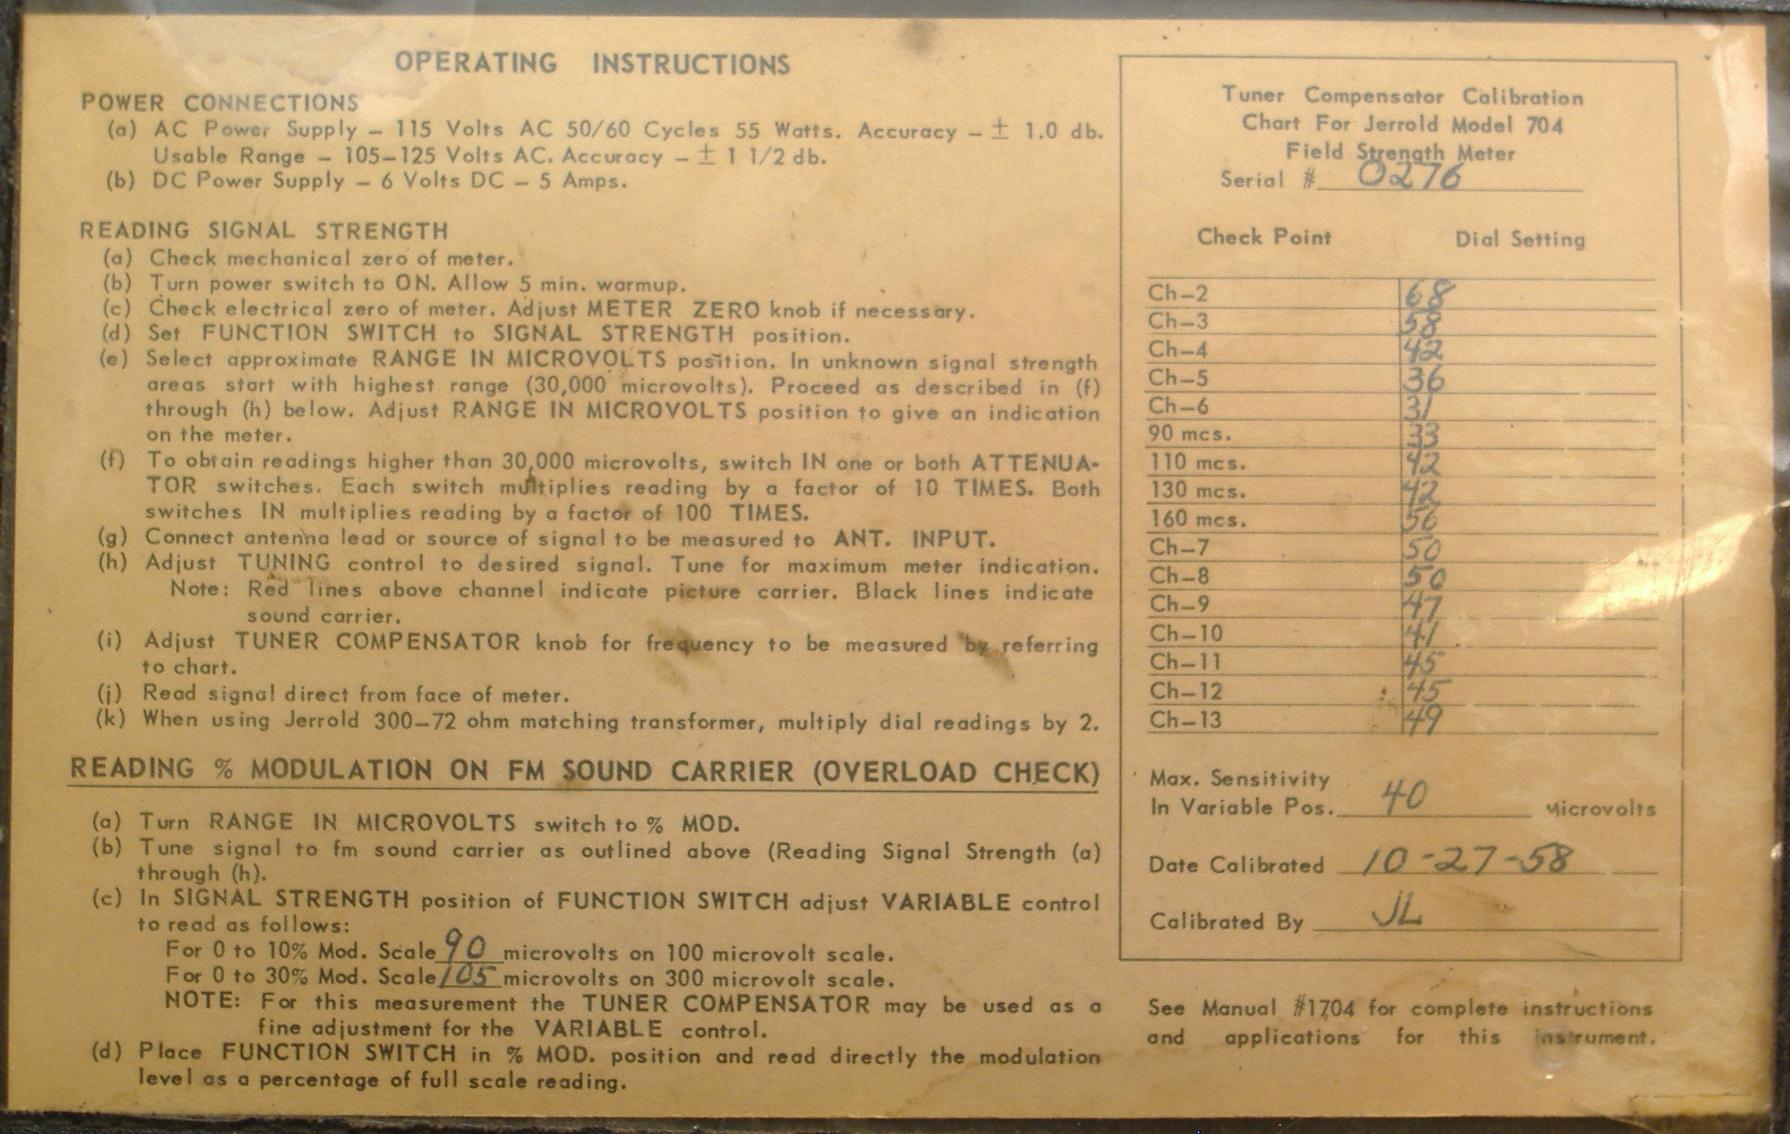 OPERATING INSTRUCTIONS
POWER CONNECTIONS
(a) AC Power Supply – 115 Volts AC 50/60 Cycles 55 Watts. Accuracy – ± 1.0 db.
Usable Range – 105–125 Volts AC. Accuracy – ± 1 1/2 db.
(b) DC Power Supply – 6 Volts DC – 5 Amps.
READING SIGNAL STRENGTH
(a) Check mechanical zero of meter.
(b) Turn power switch to ON. Allow 5 min. warmup.
(c) Check electrical zero of meter. Adjust METER ZERO knob if necessary.
(d) Set FUNCTION SWITCH to SIGNAL STRENGTH position.
(e) Select approximate RANGE IN MICROVOLTS position. In unknown signal strength
areas start with highest range (30,000 microvolts). Proceed as described in (f)
through (h) below. Adjust RANGE IN MICROVOLTS position to give an indication
on the meter.
(f) To obtain readings higher than 30,000 microvolts, switch IN one or both ATTENUA-
TOR switches. Each switch multiplies reading by a factor of 10 TIMES. Both
switches IN multiplies reading by a factor of 100 TIMES.
(g) Connect antenna lead or source of signal to be measured to ANT. INPUT.
(h) Adjust TUNING control to desired signal. Tune for maximum meter indication.
Note: Red lines above channel indicate picture carrier. Black lines indicate
sound carrier.
(i) Adjust TUNER COMPENSATOR knob for frequency to be measured by referring
to chart.
(j) Read signal direct from face of meter.
(k) When using Jerrold 300–72 ohm matching transformer, multiply dial readings by 2.
READING % MODULATION ON FM SOUND CARRIER (OVERLOAD CHECK)
(a) Turn RANGE IN MICROVOLTS switch to % MOD.
(b) Tune signal to fm sound carrier as outlined above (Reading Signal Strength (a)
through (h).
(c) In SIGNAL STRENGTH position of FUNCTION SWITCH adjust VARIABLE control
to read as follows:
For 0 to 10% Mod. Scale 90 microvolts on 100 microvolt scale.
For 0 to 30% Mod. Scale 105 microvolts on 300 microvolt scale.
NOTE: For this measurement the TUNER COMPENSATOR may be used as a
fine adjustment for the VARIABLE control.
(d) Place FUNCTION SWITCH in % MOD. position and read directly the modulation
level as a percentage of full scale reading.
Tuner Compensator Calibration
Chart For Jerrold Model 704
Field Strength Meter
Serial # 0276
Check Point Dial Setting
Ch–2 68
Ch–3 58
Ch–4 42
Ch–5 36
Ch–6 31
90 mcs. 33
110 mcs. 42
130 mcs. 42
160 mcs. 56
Ch–7 50
Ch–8 50
Ch–9 47
Ch–10 41
Ch–11 45
Ch–12 45
Ch–13 49
Max. Sensitivity
In Variable Pos. 40 Microvolts
Date Calibrated 10-27-58
Calibrated By JL
See Manual #1704 for complete instructions
and applications for this instrument.